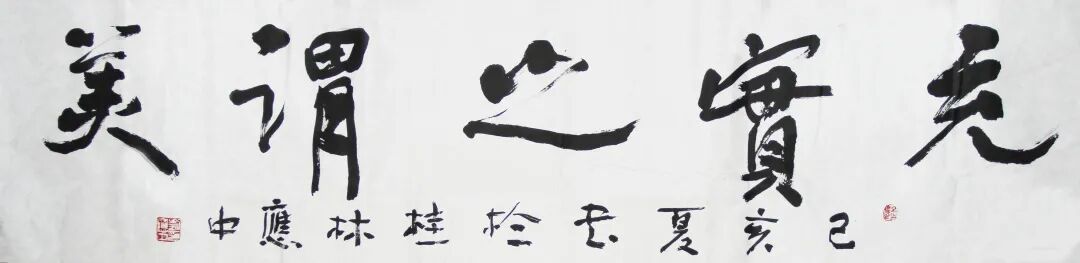 充實之謂美
己亥夏書於桂林應中